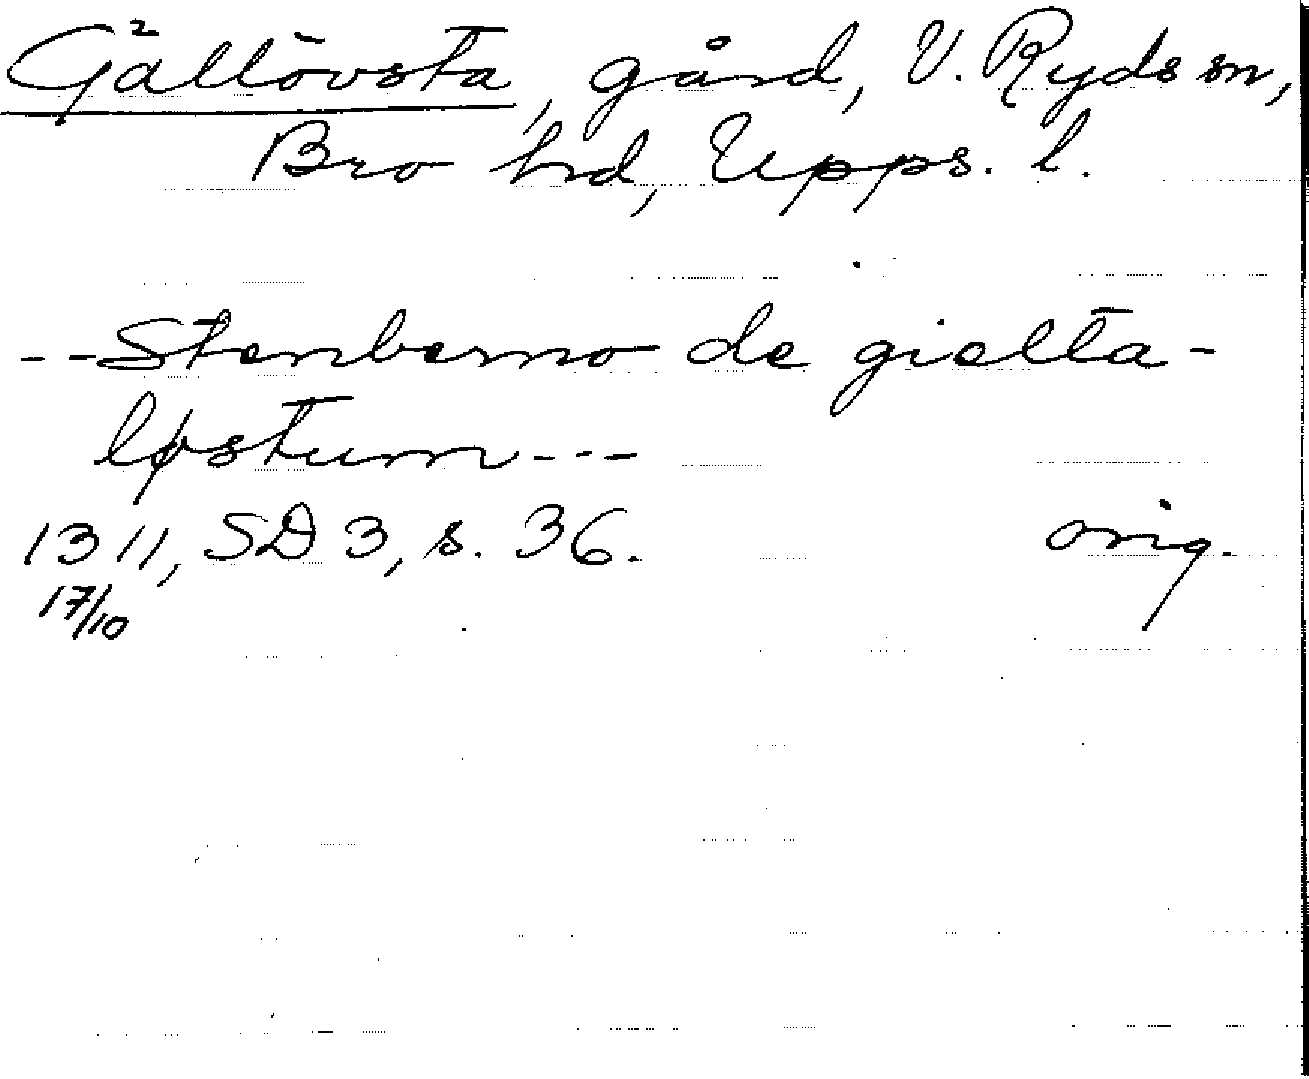 Gällövsta, gård, V. Ryds sn,
Bro hd, Upps. l.
--Stenberno de gielta-
løstum---
1311, SD 3, s. 36. orig.
17/10